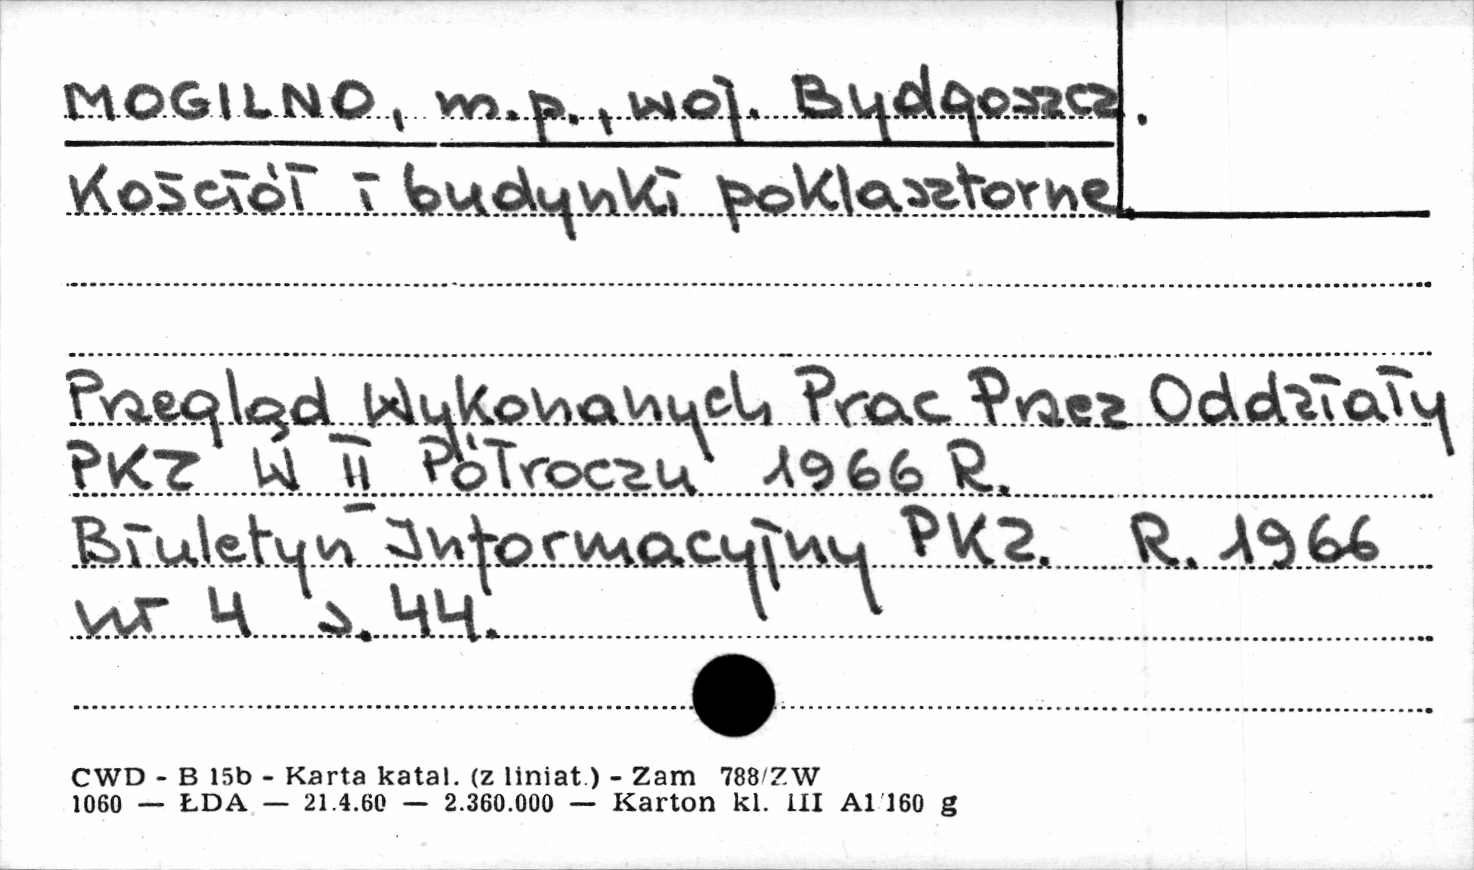 MOGILNO, m.p., woj. Bydgoszcz.
Kościół i budynki poklasztorne.
Przegląd Wykonanych Prac Przez Oddziały
PKZ W II Półroczu 1966 R.
Biuletyn Informacyjny PKZ. R. 1966
nr 4 s. 44.
CWD - B 15b - Karta katal. (z liniat.) - Zam 788/ZW
1060 — ŁDA — 21.4.60 — 2.360.000 — Karton kl. III A1/160 g